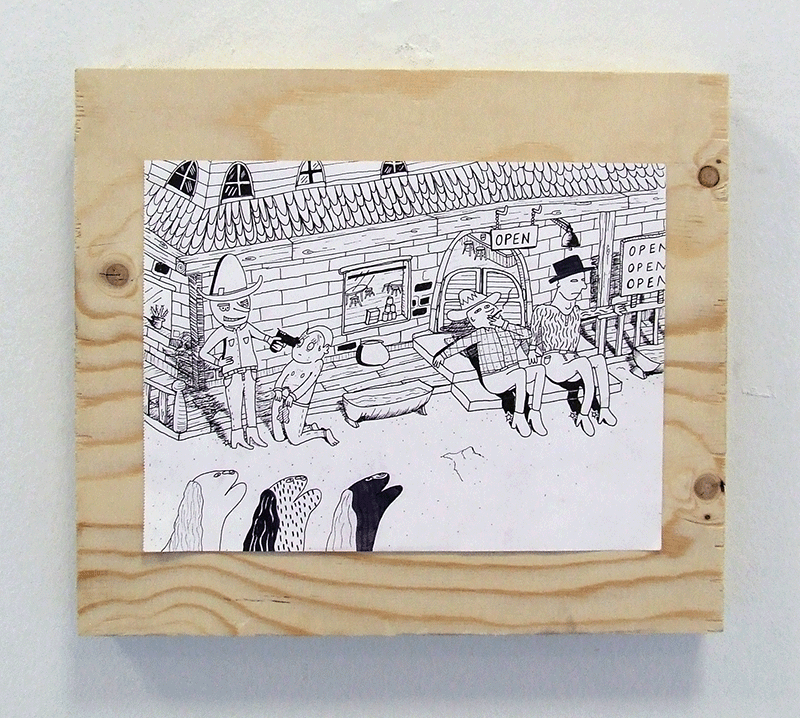 OPEN
OPEN
OPEN
OPEN